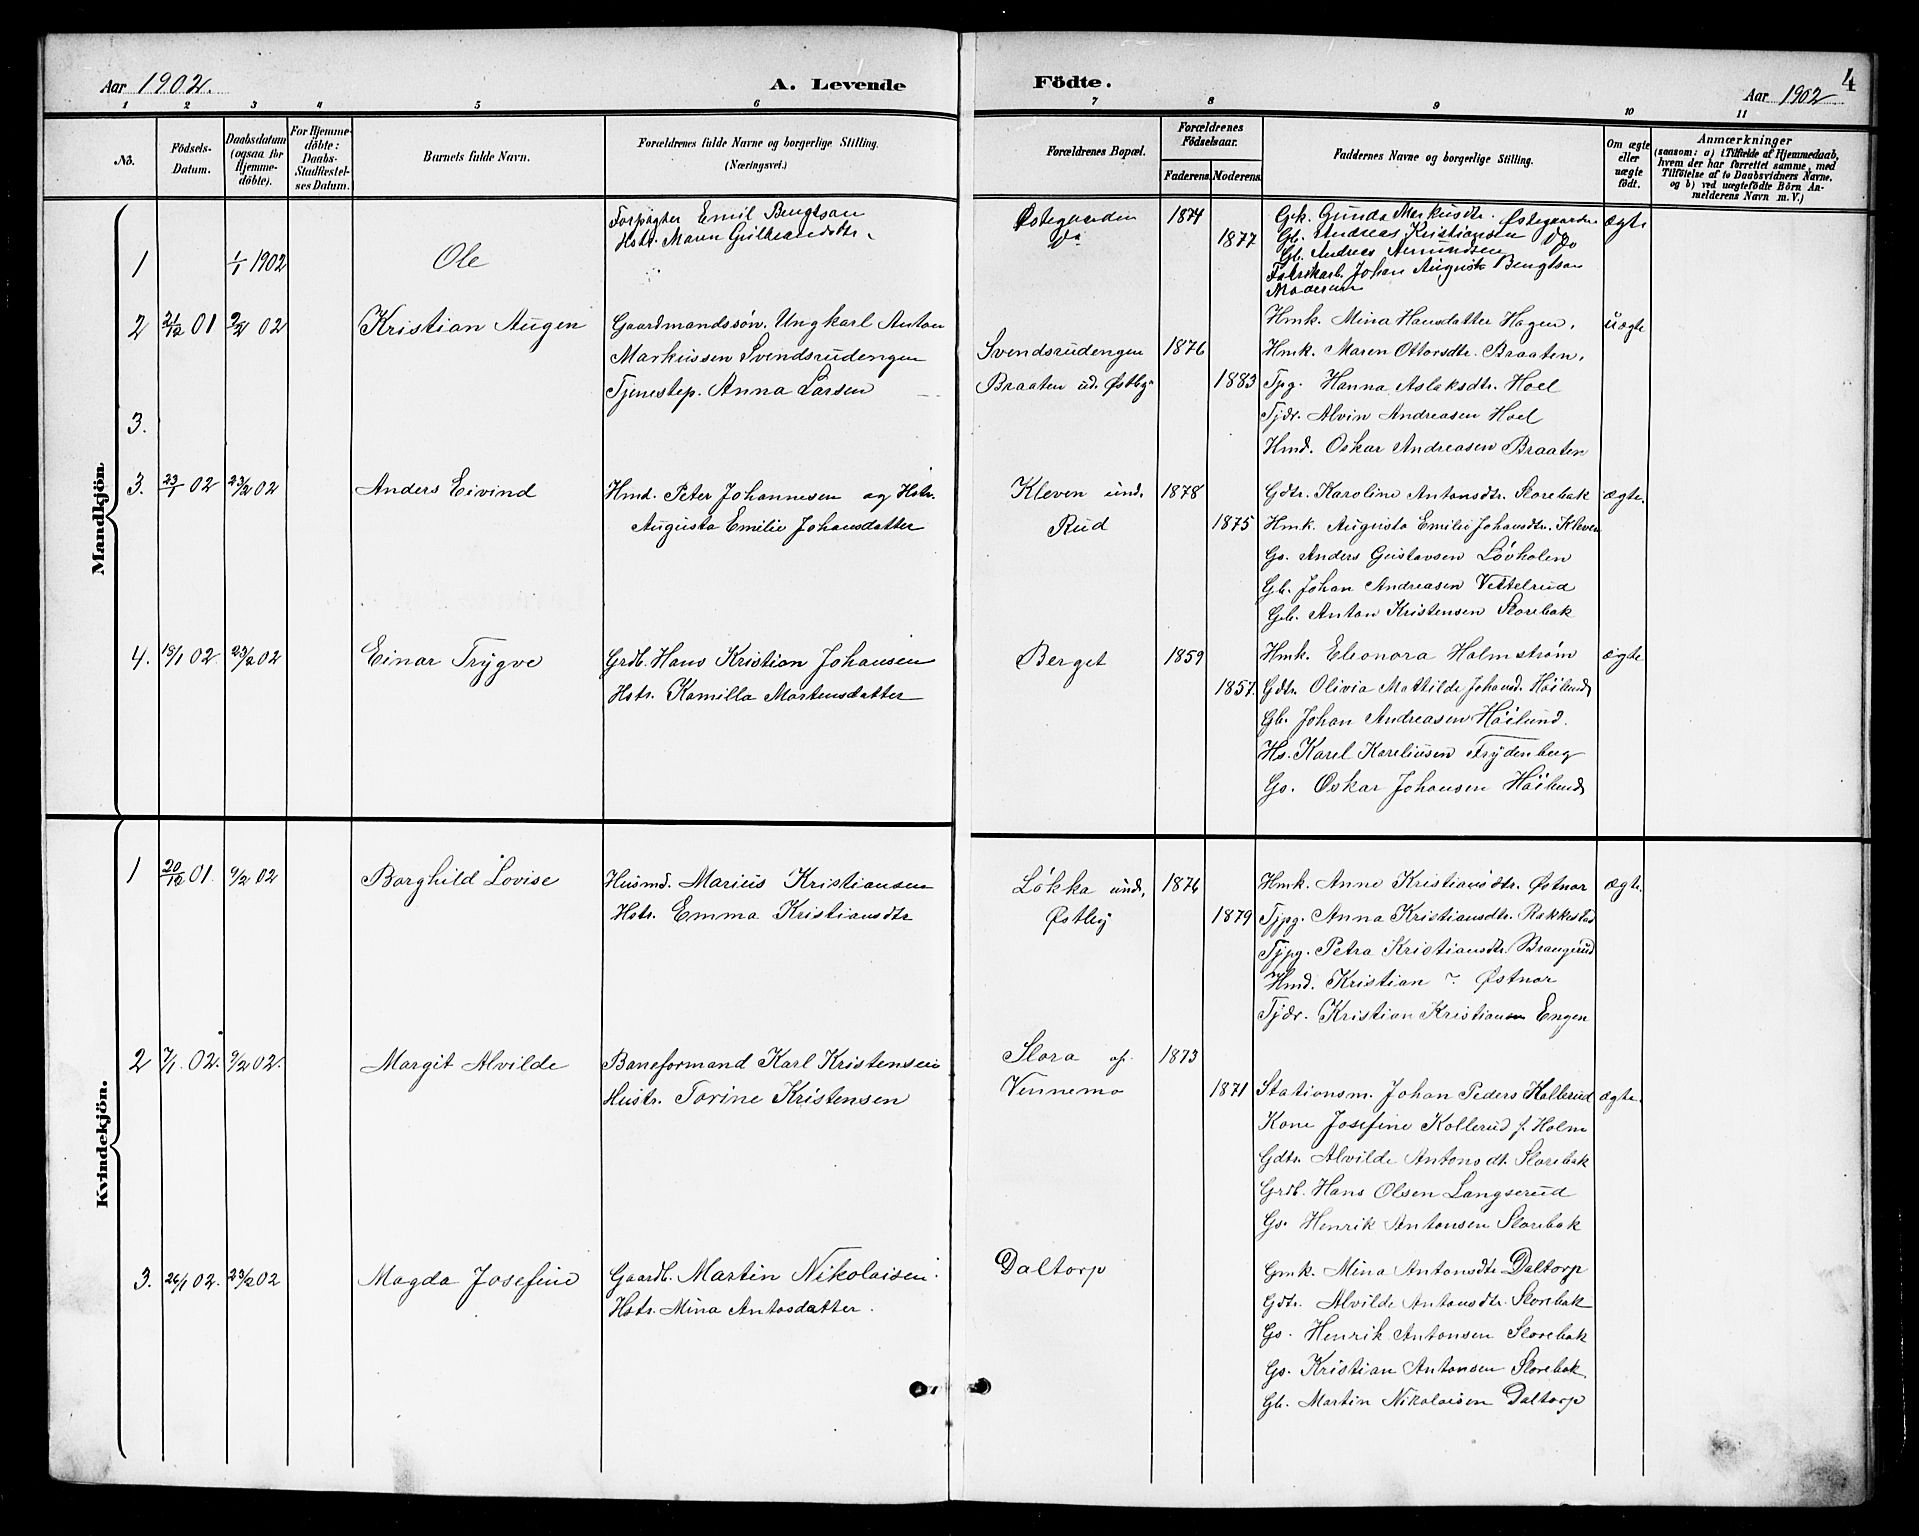 Aar 1902.
A. Levende
Födte.
4
Aar 1902
1 2 3 4 5 6 7 8 9 10 11
No.
Födsels-Datum.
Daabsdatum (ogsaa for Hjemmedöbte).
For Hjemmedöbte: Daabs-Stadfæstelses Datum.
Barnets fulde Navn.
Forældrenes fulde Navne og borgerlige Stilling. (Næringsvei.)
Forældrenes Bopæl.
Forældrenes Födselsaar.
Faderens. Moderens.
Faddernes Navne og borgerlige Stilling.
Om ægte eller uægte födt.
Anmærkninger
(saasom: a) i Tilfælde af Hjemmedaab, hvem der har forrettet samme, med Tilföielse af to Daabsvidners Navne, og b) ved uægtefödte Börn Anmelderens Navn m. V.)
Mandkjön.
1
1/1 1902
Ole
Forpagter Emil Bengtsan
Hstr. Maren Gulbrandsdtr.
Østegaarden
do
1874
1877
Gk. Gunda Markusdtr. Østegaarden
Gb. Andreas Kristiansen do
Gb. Andreas Amundsen
Fabrikarb. Johan August Bengtsan
Moderen
ægte
2 21/12 01 2/2 02
Kristian Augen
Gaardmandssøn. Ungkarl Anton
Markussen Svendsrudengen
Tjenestep. Anna Larsen
Svendsrudengen
Braaten ud. Østby
1876
1883
Hmk. Mina Hansdatter Hagen,
Hmk. Maren Ottorsdtr. Braaten,
Tpg. Hanna Aslaksdtr. Hoel
Tjdr. Alvin Andreasen Hoel
Hmd. Oskar Andreasen Braaten
uægte
3.
3. 23/1 02 23/2 02
Anders Eivind
Hmd. Peter Johannesen og Hstr.
Augusta Emilie Johansdatter
Kleven und.
Rud
1878
1875
Gdtr. Karoline Antonsdtr. Slorebak
Hmk. Augusta Emilie Johansdtr. Kleven
Gs. Anders Gustavsen Løvholen
Gb. Johan Andreasen Vettelrud
Gb. Anton Kristensen Slorebak
ægte.
4. 18/1 02. 23/2 02
Einar Trygve
Grdb. Hans Kristian Johansen
Hstr. Kamilla Martensdatter
Berget
1859
1857.
Hmk. Eleonora Holmstrøm
Gdtr. Olivia Mathilde Johansd. Höilund
Gb. Johan Andreasen Höilund.
Hs. Karel Kareliusen Frydenberg
Gs. Oskar Johansen Höilund
ægte
Kvindekjön.
1 20/12 01. 9/2 02
Borghild Lovise
Husmd. Marius Kristiansen
Hstr. Emma Kristiansdtr
Løkka und,
Østby
1876
1879
Hmk. Anne Kristiansdtr. Østnor
Tjpg. Anna Kristiansdtr. Rakkestad
Tjpg. Petra Kristiansdtr. Brangerud
Hmd. Kristian ? Østnor
Tjdr. Kristian Kristiansen Engen
ægte.
2 7/1 02. 9/2 02.
Margit Alvilde
Baneformand Karl Kristensen
Hustr. Torine Kristensen
Slora af.
Vennemo
1873
1871
Stationsm. Johan Peders Kollerud
Kone Josefine Kollerud f. Holm
Gdtr. Alvilde Antonsdt. Slorebak
Grdb. Hans Olsen Langserud
Gs. Henrik Antonsen Slorebak
ægte.
3. 26/1 02. 23/2 02
Magda Josefine
Gaardb. Martin Nikolaisen.
Hstr. Mina Antosdatter.
Daltorp
Gmk. Mina Antonsdtr Daltorp
Gdtr. Alvilde Antonsdtr. Slorebak
Gs. Henrik Antonsen Slorebak
Gs. Kristian Antonsen Slorebak
Gb. Martin Nikolaisen Daltorp